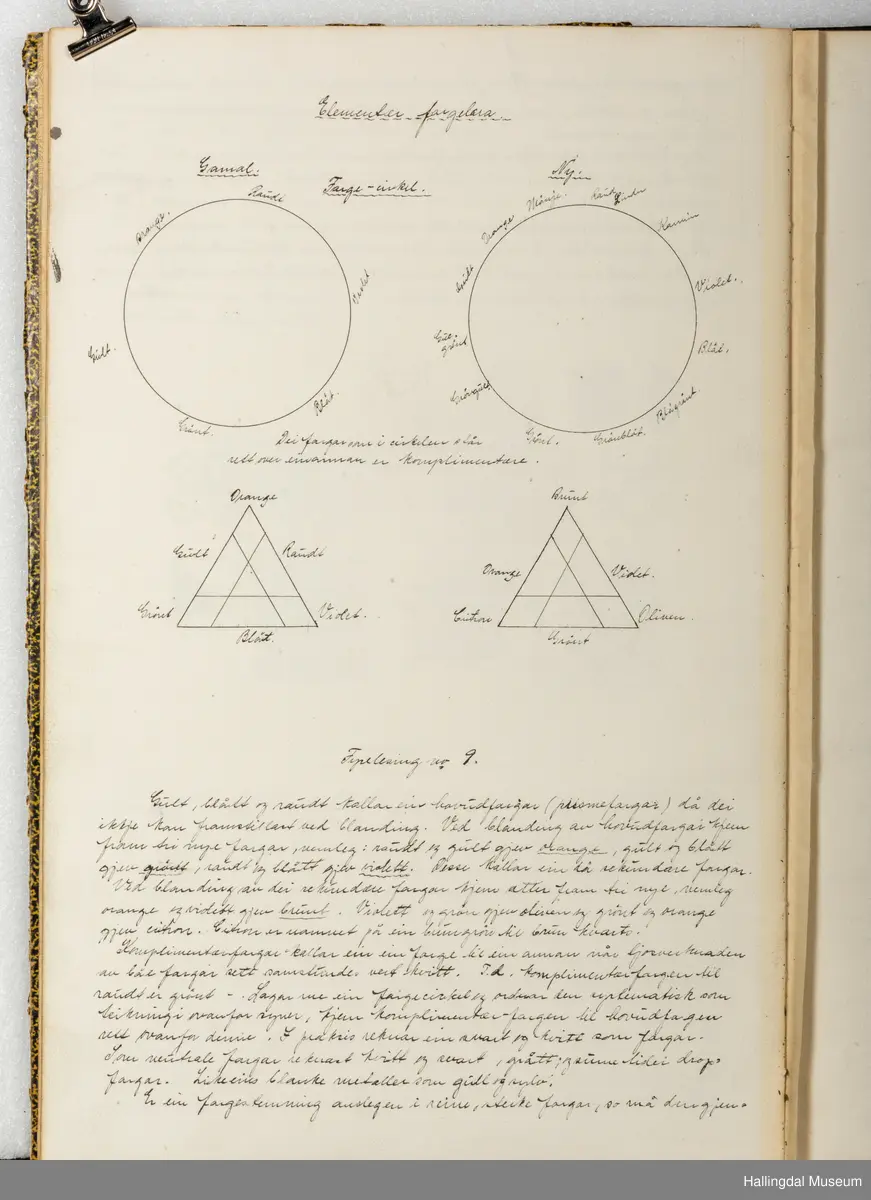 Elementær fargelæra
Gamal.
Farge-cirkel.
Ny.
Raudt
Orange.
Violet
Gult.
Blåt.
Grönt.
Mönje.
Orange
Raudt
Karmin
Gult
Violet.
Gulgrönt
Blåt.
Gröngult
Blågrönt
Grönt.
Grönblåt.
Dei fargar som i cirkelen står
rett over einannan er komplimentære.
Orange
Gult
Raudt
Grönt
Violet.
Blåt.
Brunt
Orange
Violet.
Citron
Oliven.
Grönt
Fyrelesing no 9.
Gult, blått og raudt kallar ein hovudfargar (prismefargar) då dei
ikkje kan framstillast ved blanding. Ved blanding av hovudfargar kjem
fram tri nye fargar, nemleg: raudt og gult gjev orange, gult og blått
gjev grönt, raudt og blått gjev violett. Desse kallar ein då sekundære fargar.
Ved blanding av dei sekundære fargar kjem atter fram tri nye, nemleg
orange og violett gjev brunt. Violett og grön gjev oliven og grönt og orange
gjev citron. Citron er namnet på ein brungrön til brun kvarts.
Komplimentærfargar kallar ein ein farge til ein annan når ljosverknaden
av båe fargar sett samstundes vert kvitt. T.d. komplimentærfargen til
raudt er grönt - Lagar me ein fargecirkel og ordnar den systematisk som
teikningi ovanfor syner, kjem komplimentær-fargen til hovudfargen
rett ovanfor denne. I praksis reknar ein svart og kvitt som fargar.
Som neutrale fargar reknast kvitt og svart, grått, og sume tider drop-
fargar. Likeeins blanke metaller som gull og sylv.
Er ein fargestemning anslegen i reine, sterke fargar, so må den gjen-
Hallingdal Museum